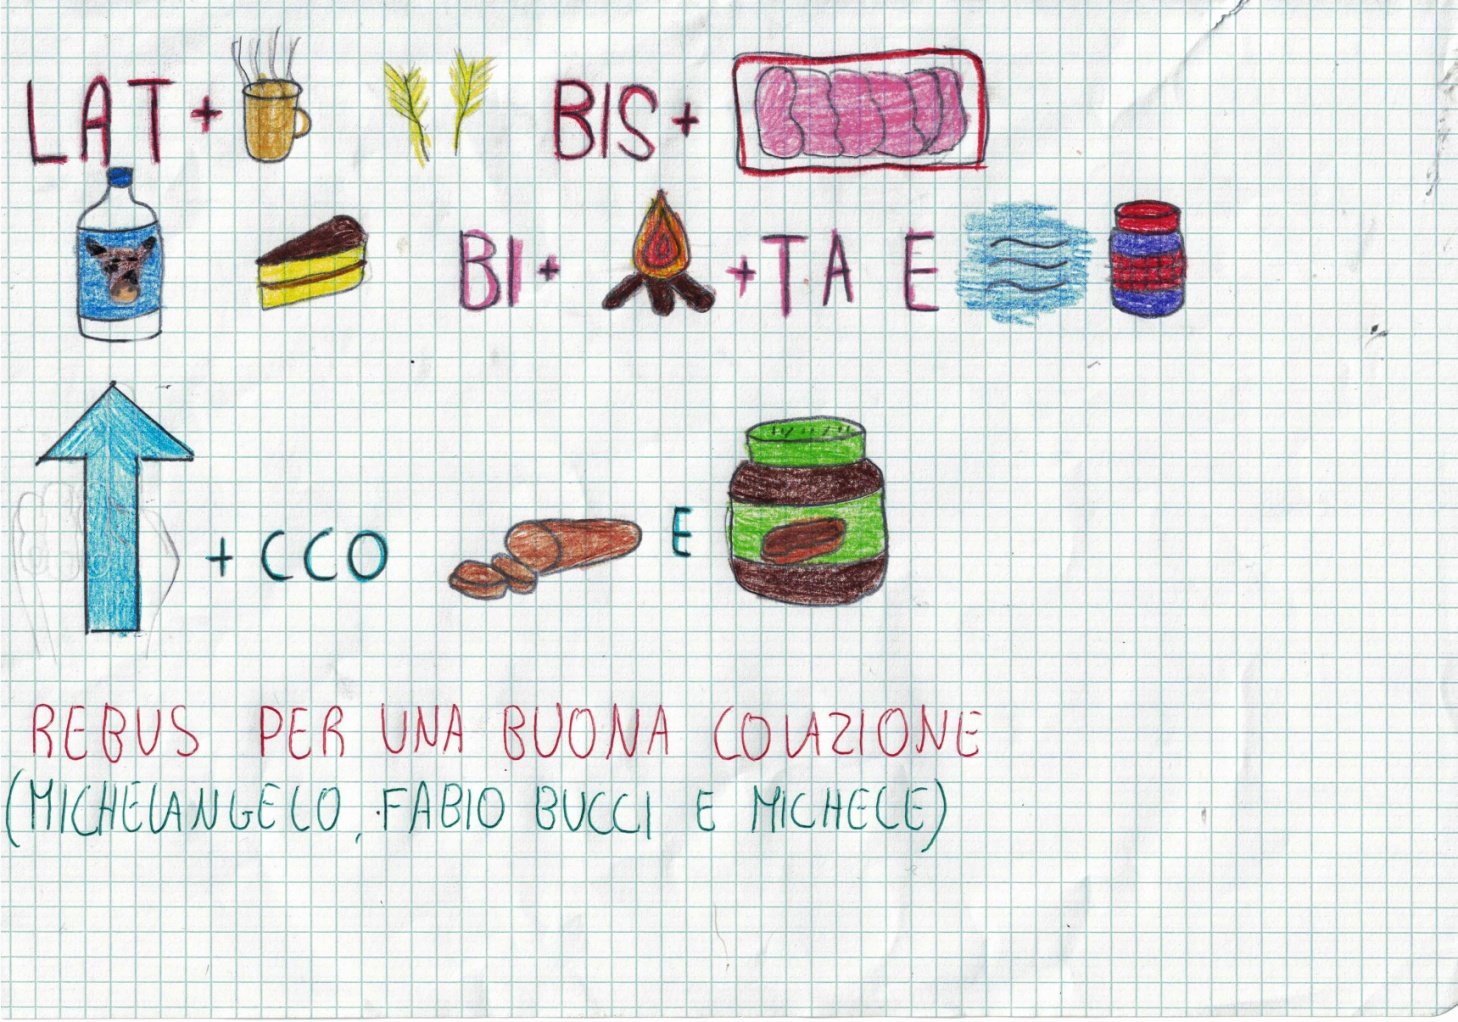 LAT + BIS +
BI + + TA E
+ CCO E
REBUS PER UNA BUONA COLAZIONE
(MICHELANGELO, FABIO BUCCI E MICHELE)